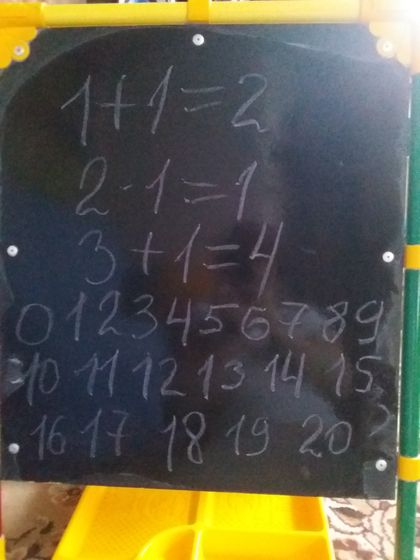 1+1=2
2-1=1
3+1=4
0123456789
10 11 12 13 14 15
16 17 18 19 20